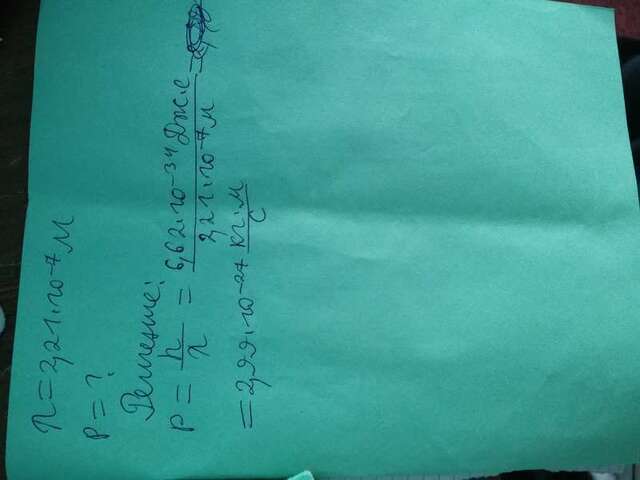 λ = 2,21·10⁻⁷ м
p = ?
Решение:
p = h/λ = 6,62·10⁻³⁴ Дж·с / 2,21·10⁻⁷ м =
= 2,99·10⁻²⁷ кг·м/с